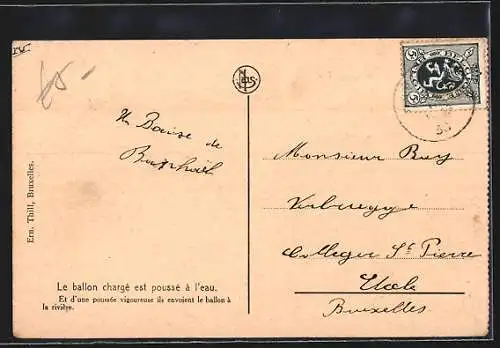 BELGIQUE
Un Baiser de
Raphaël
Monsieur Guy
Verbrugge
Collège St Pierre
Uccle
Bruxelles
Ern. Thill, Bruxelles.
Le ballon chargé est poussé à l'eau.
Et d'une poussée vigoureuse ils envoient le ballon à
la rivière.